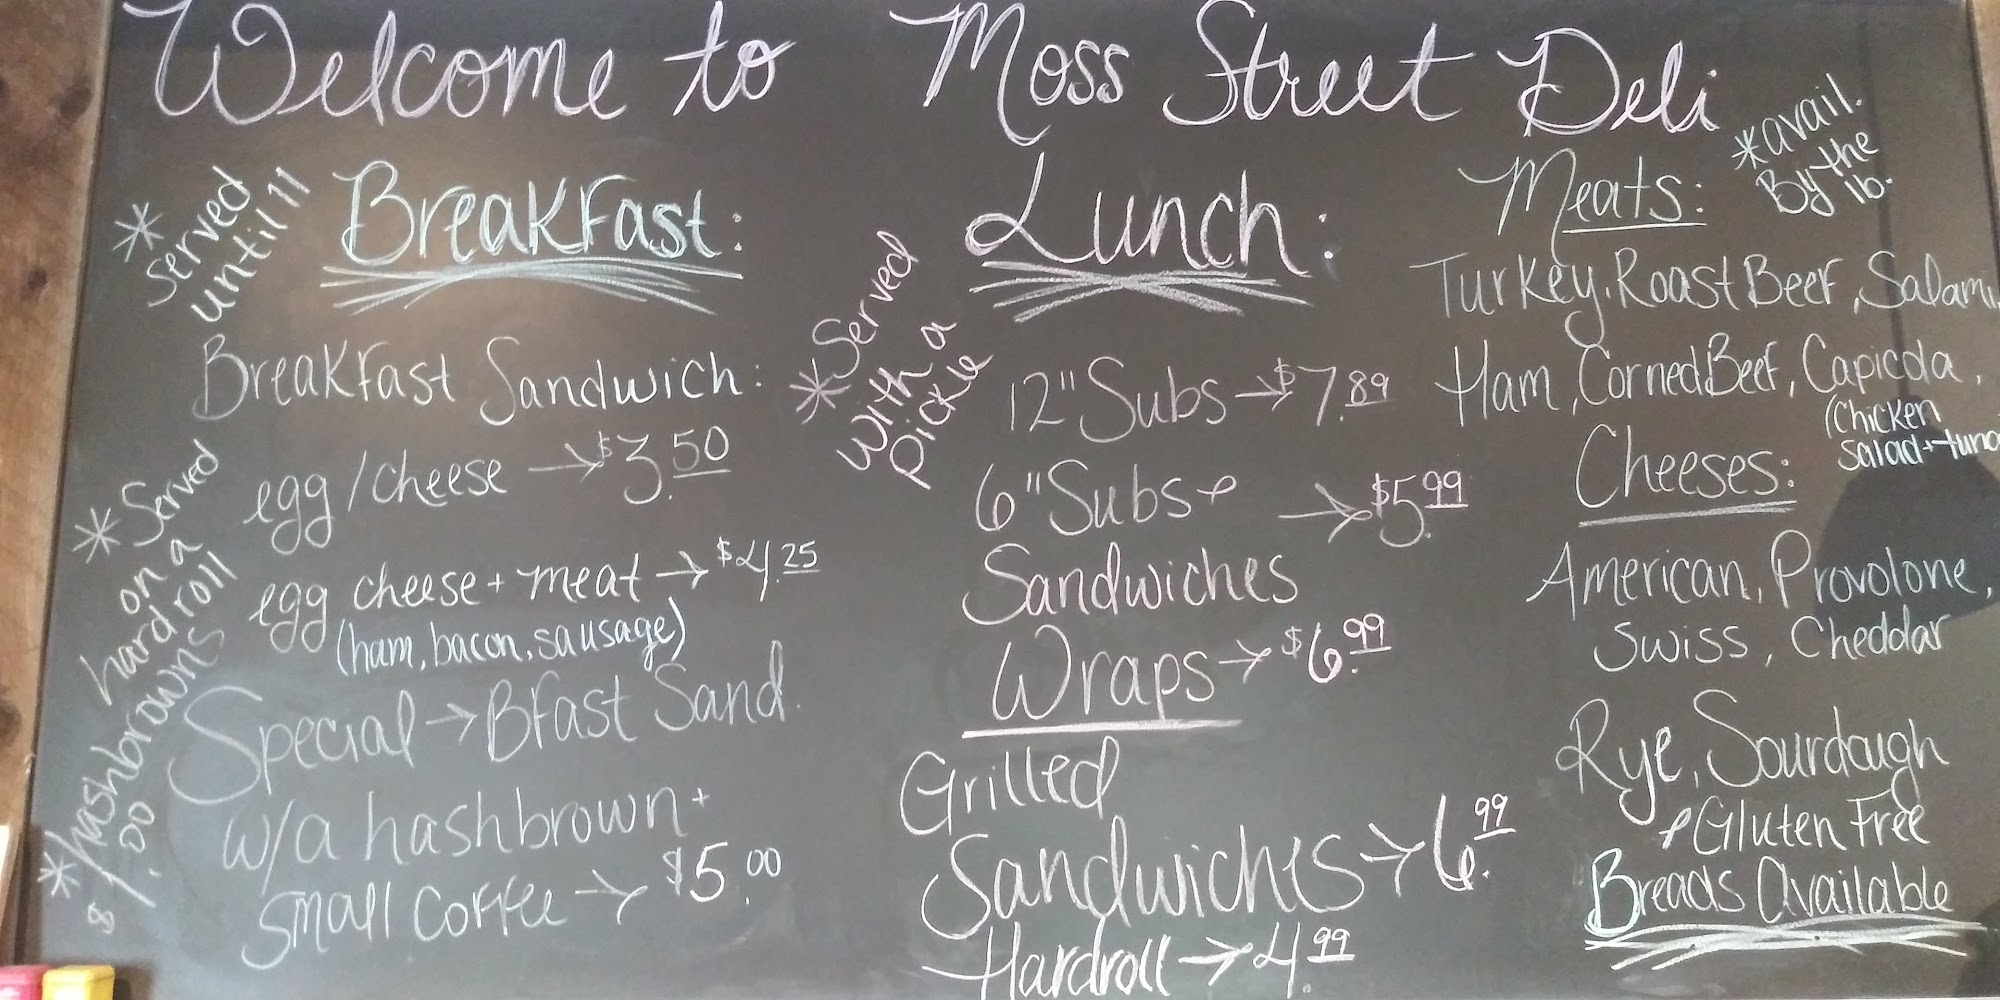 Welcome to Moss Street Deli
* Served
until 11
Breakfast:
Breakfast Sandwich:
* Served
on a
hard roll
egg/cheese → $3.50
egg cheese + meat → $4.25
(ham, bacon, sausage)
* hashbrowns
$1.00
Special → Bfast Sand.
w/a hashbrown +
small coffee → $5.00
Lunch:
* Served
with a
pickle
12" Subs → $7.89
6" Subs + → $5.99
Sandwiches
Wraps → $6.99
Grilled
Sandwiches → 6.99
Hardroll → 4.99
Meats:
* avail.
By the
lb.
Turkey, Roast Beef, Salami,
Ham, Corned Beef, Capicola,
(Chicken
Salad + tuna
Cheeses:
American, Provolone,
Swiss, Cheddar
Rye, Sourdough
+ Gluten Free
Breads Available